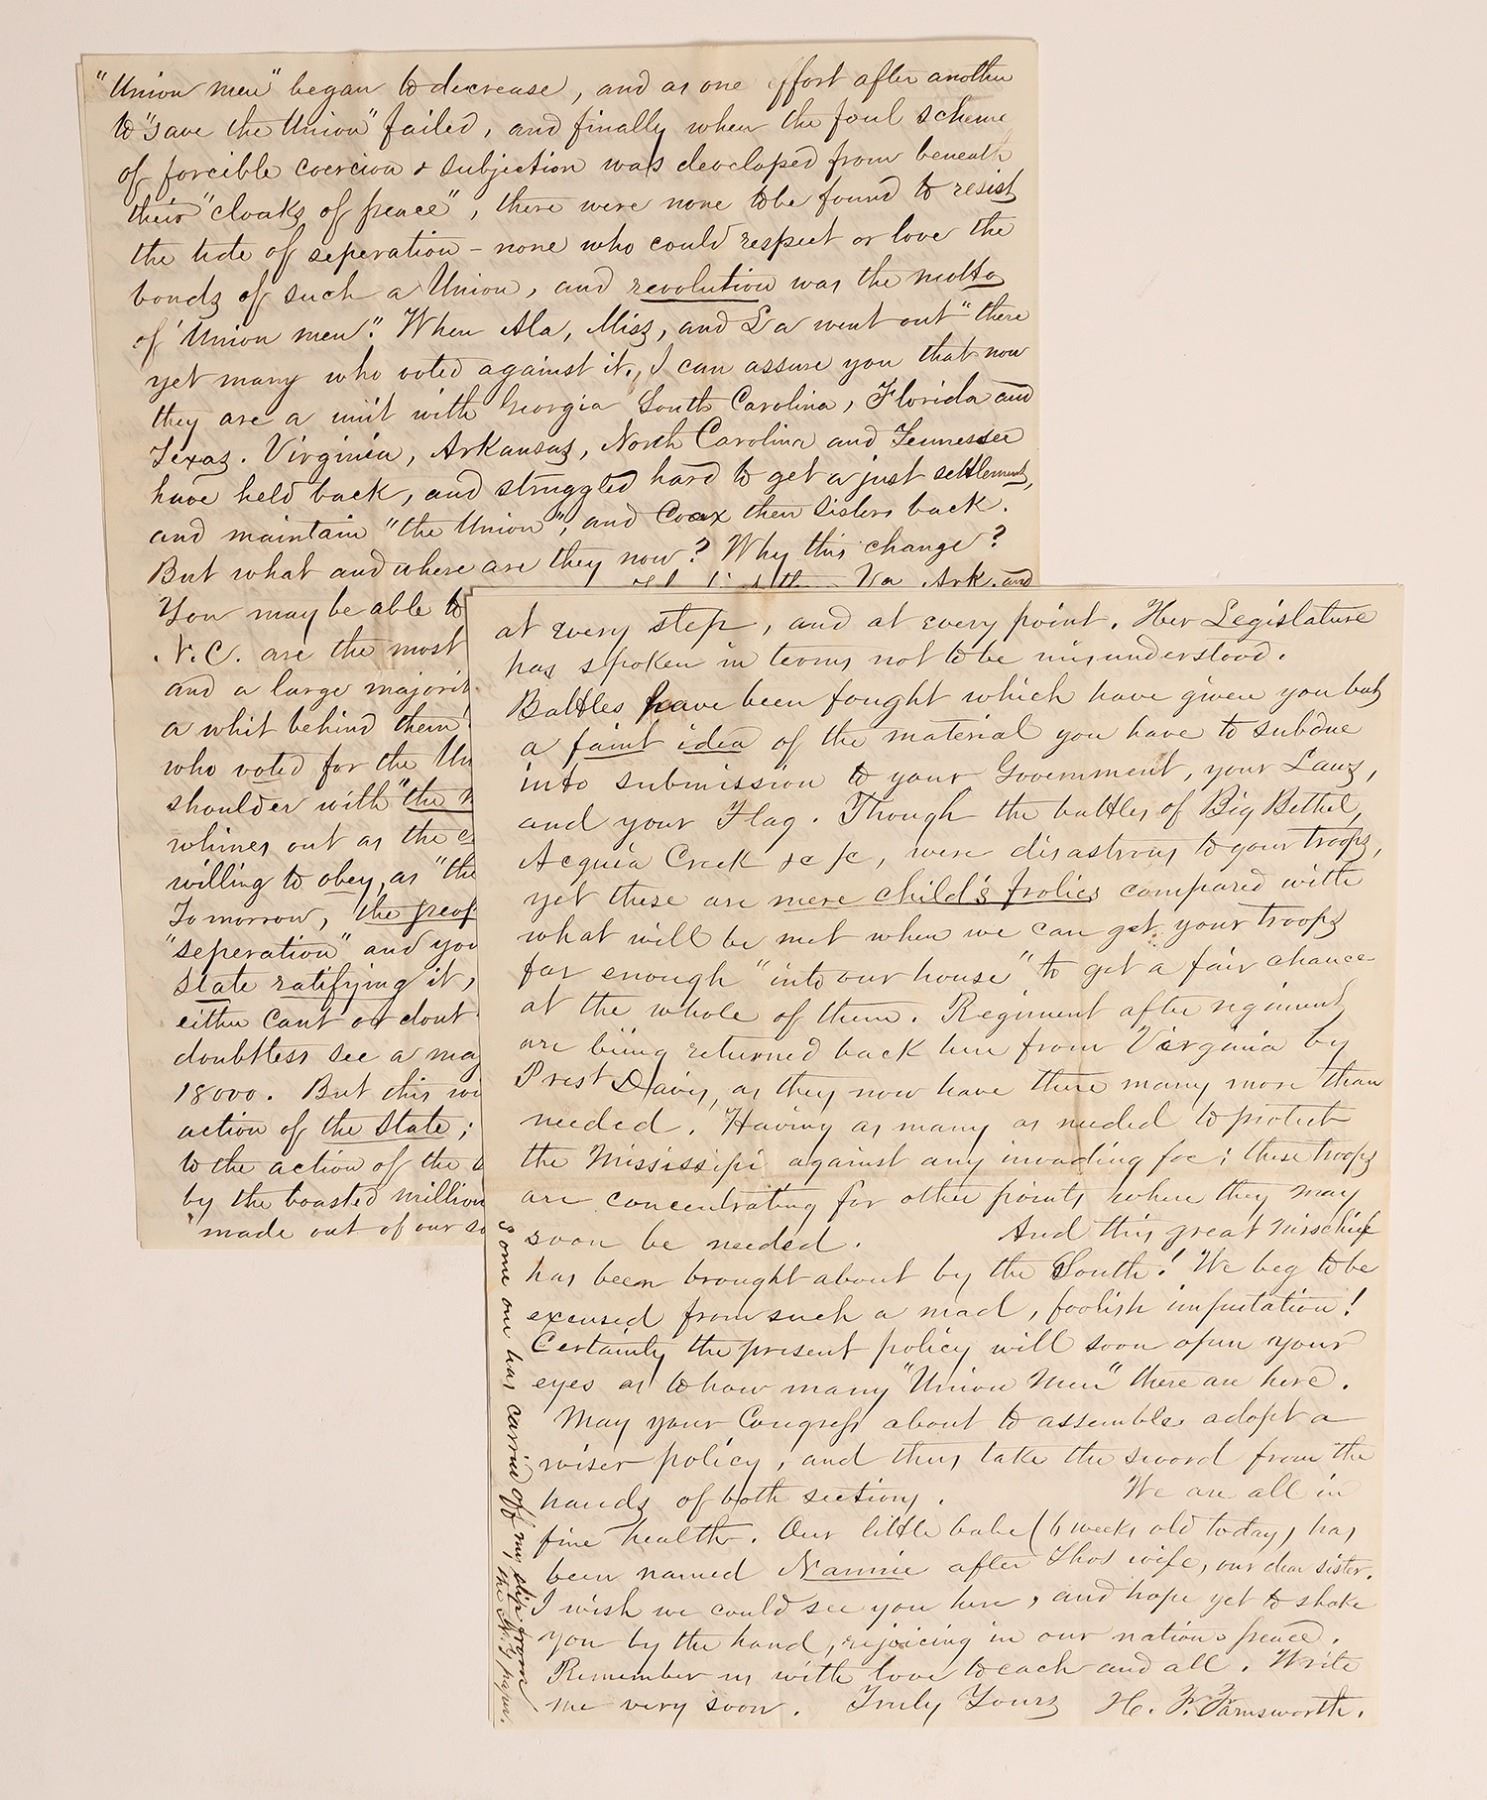 "Union men" began to decrease, and as one effort after another
to "save the Union" failed, and finally when the foul scheme
of forcible coercion & subjection was developed from beneath
their "cloaks of peace", there were none to be found to resist
the tide of seperation - none who could respect or love the
bonds of such a Union, and revolution was the motto
of "Union men". When Ala, Miss, and La went out "there
yet many who voted against it., I can assure you that now
they are a unit with Georgia South Carolina, Florida and
Texas. Virginia, Arkansas, North Carolina and Tennessee
have held back, and struggled hard to get a just settlement,
and maintain "the Union", and coax their sisters back.
But what and where are they now? Why this change?
You may be able to Va, Ark. and
N.C. are the most
and a large majorit
a whit behind them
who voted for the Un
shoulder with "the
whines out as the
willing to obey, as "the
Tomorrow, the peop
"seperation" and you
State ratifying it,
either cant or dont
doubtless see a maj
18000. But this wi
action of the State;
to the action of the
by the boasted million
made out of our so
at every step, and at every point. Her Legislature
has spoken in terms not to be misunderstood.
Battles have been fought which have given you but
a faint idea of the material you have to subdue
into submission to your Government, your Laws,
and your Flag. Though the battles of Big Bethel,
Acquia Creek &c &c, were disastrous to your troops,
yet these are mere child's frolics compared with
what will be met when we can get your troops
far enough "into our house" to get a fair chance
at the whole of them. Regiment after regiment
are being returned back here from Virginia by
Prest Davis, as they now have there many more than
needed. Having as many as needed to protect
the Mississipi against any invading foe; these troops
are concentrating for other points where they may
soon be needed. And this great mischief
has been brought about by the South! We beg to be
excused from such a mad, foolish imputation!
Certainly the present policy will soon open your
eyes as to how many "Union Men" there are here.
May your Congress about to assemble adopt a
wiser policy, and thus take the sword from the
hands of both sections. We are all in
fine health. Our little babe (6 weeks old today) has
been named Nannie after Thos wife, our dear sister.
I wish we could see you here, and hope yet to shake
you by the hand, rejoicing in our nation's peace.
Remember us with love to each and all. Write
me very soon. Truly Yours H. F. Farnsworth.
Some one has carried off my slip from
the N.Y. paper.